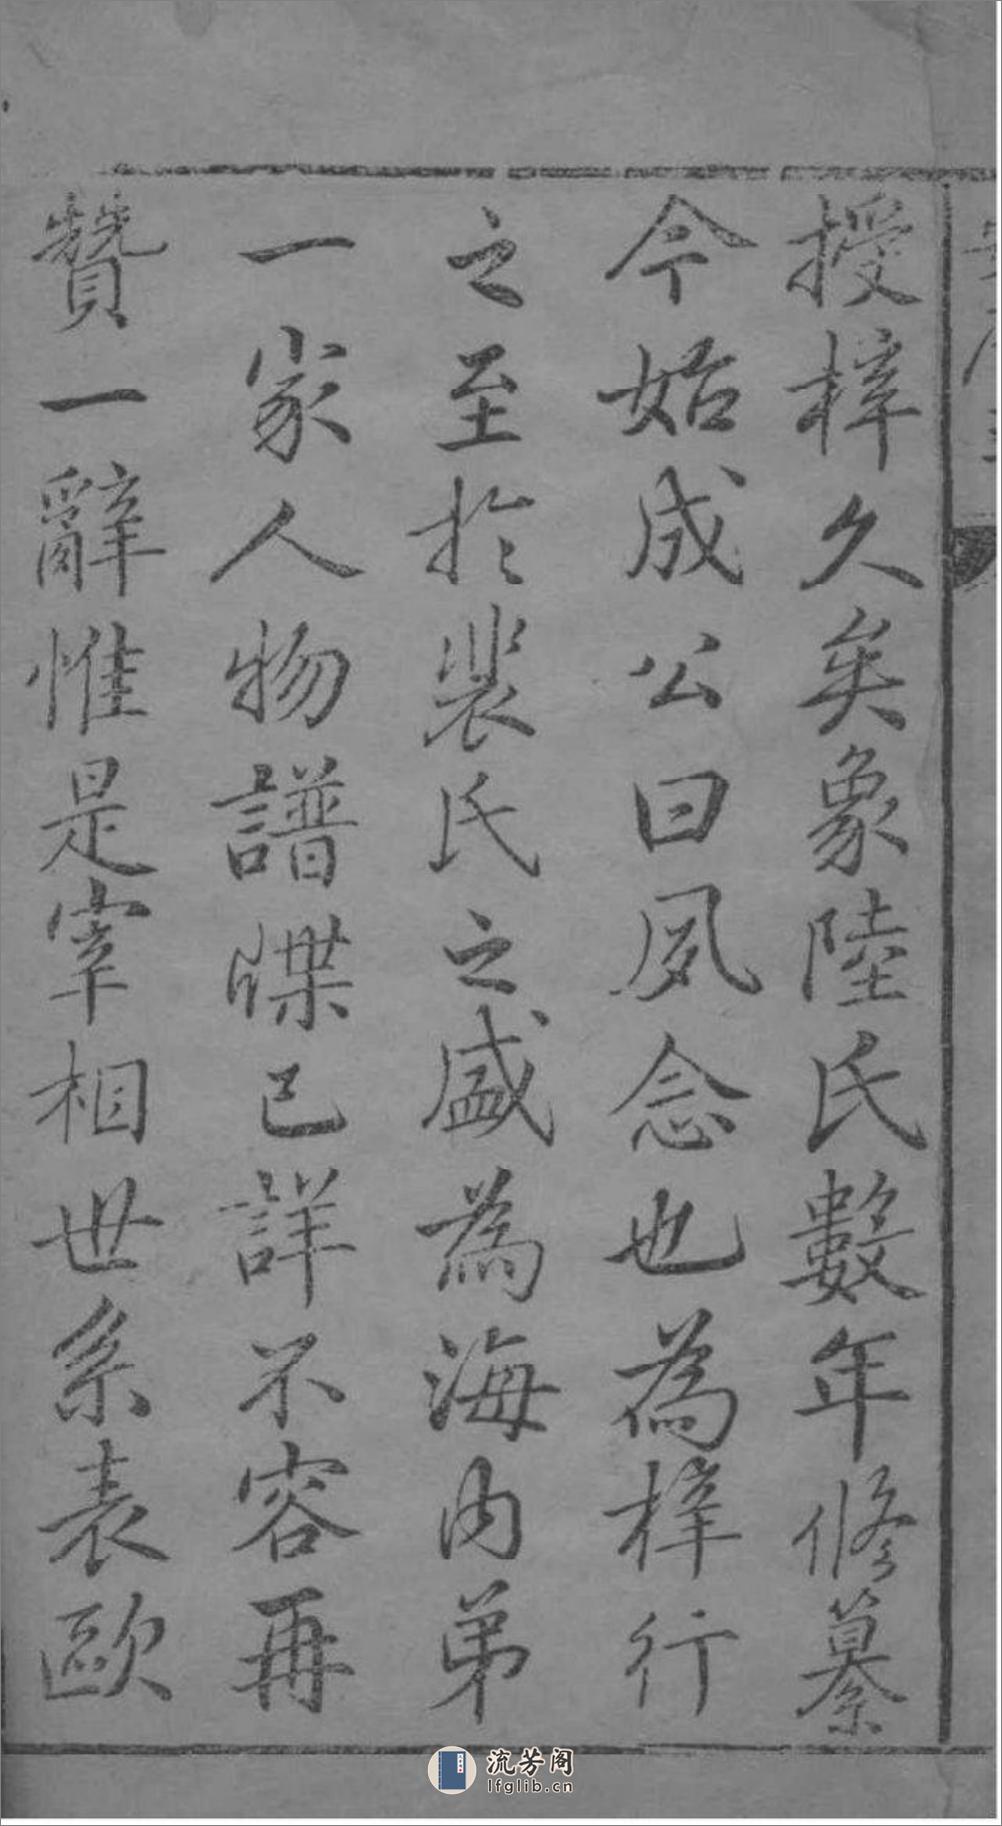 授梓久矣象陸氏數年修纂
今始成公曰夙念也為梓行
之至於裴氏之盛為海内弟
一家人物譜牒已詳不容再
贊一辭惟是宰相世系表歐
流芳阁
lfglib.cn